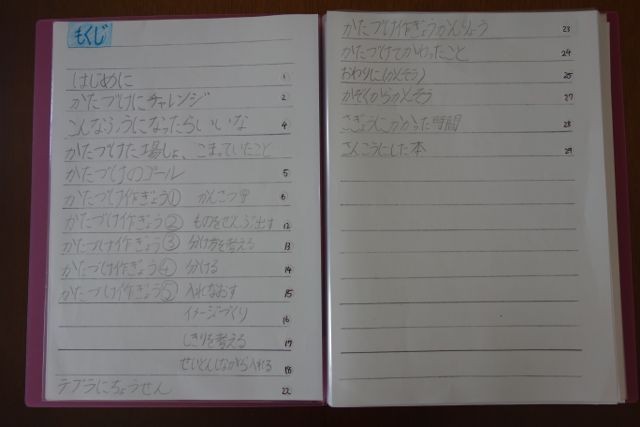 もくじ
はじめに 1
かたづけにチャレンジ 2
こんなふうになったらいいな 4
かたづけた場しょ、こまっていたこと
かたづけのゴール 5
かたづけ作ぎょう① かんこつ 6
かたづけ作ぎょう② ものをぜんぶ出す 12
かたづけ作ぎょう③ 分け方を考える 13
かたづけ作ぎょう④ 分ける 14
かたづけ作ぎょう⑤ 入れなおす 15
イメージづくり 16
しきりを考える 17
せいとんしながら入れる 18
テプラにちょうせん 22
かたづけ作ぎょうかんりょう 23
かたづけてかわったこと 24
おわりに(かんそう) 25
かぞくからかんそう 27
さぎょうにかかった時間 28
さんこうにした本 29